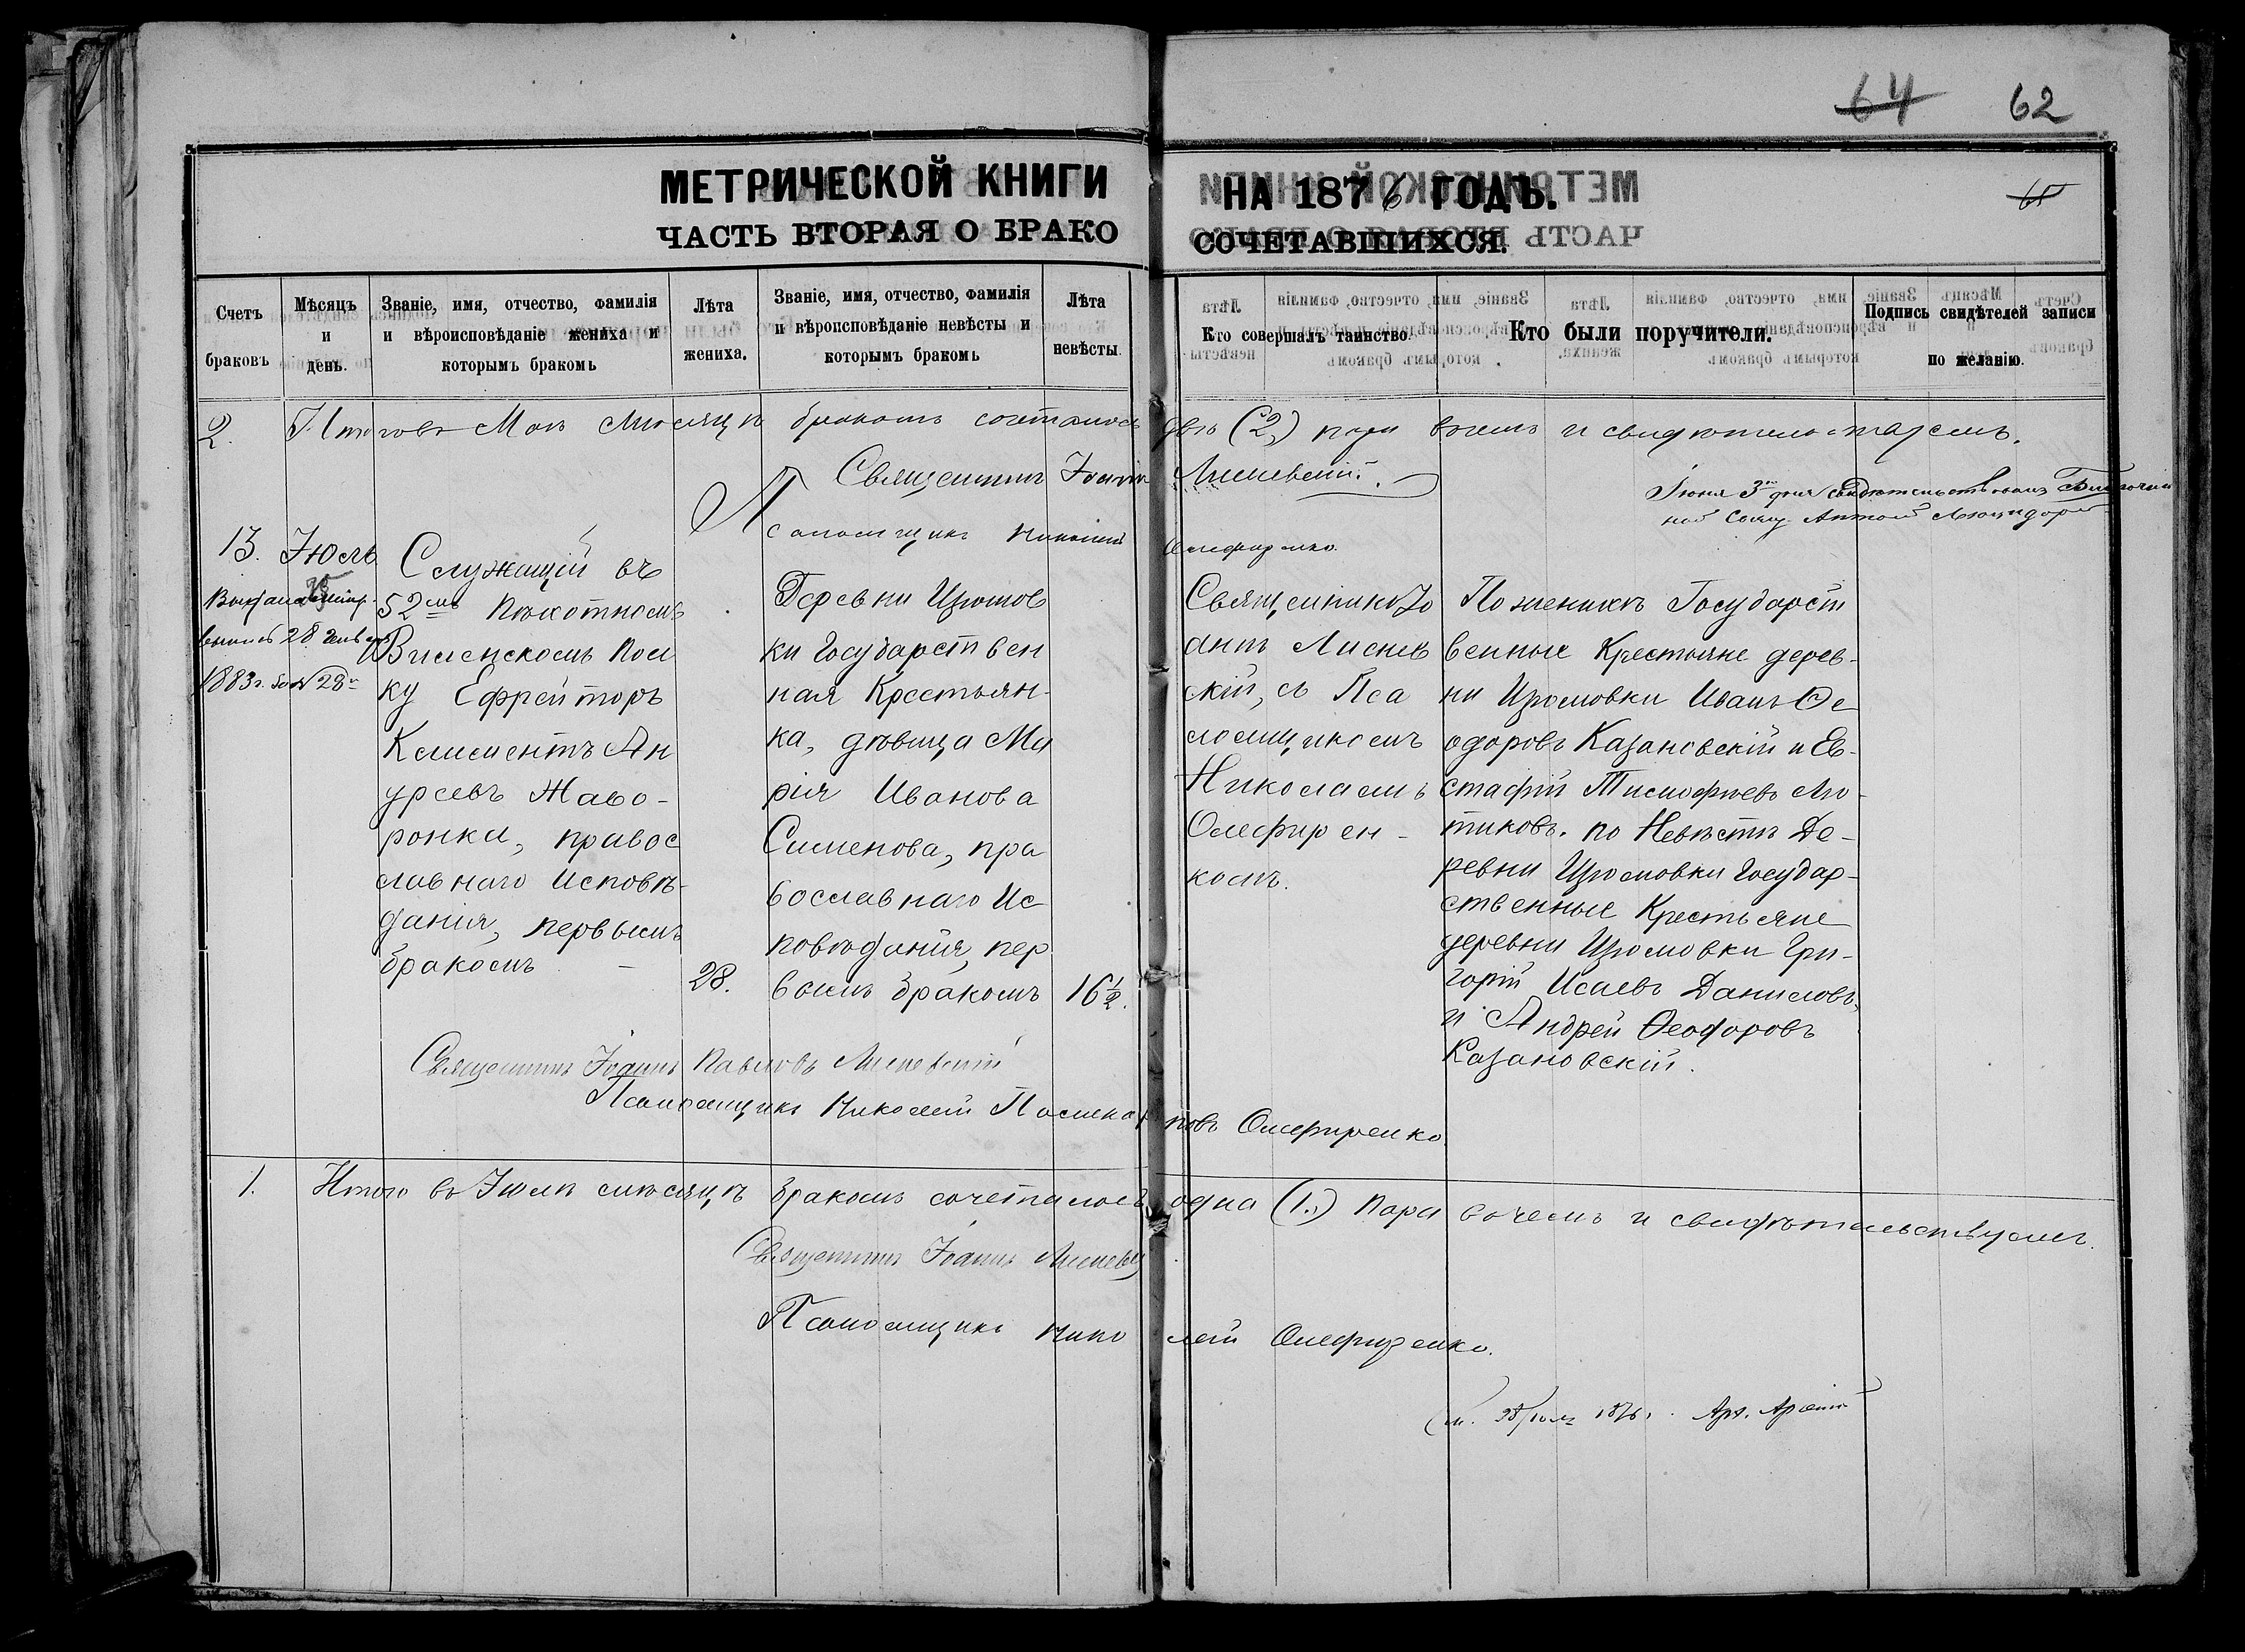 64 62
МЕТРИЧЕСКОЙ КНИГИ НА 1876 ГОДЪ.
ЧАСТЬ ВТОРАЯ О БРАКО СОЧЕТАВШИХСЯ.
Счетъ браковъ
Мѣсяцъ и день.
Званіе, имя, отчество, фамилія
и вѣроисповѣданіе жениха и
которымъ бракомъ
Лѣта жениха.
Званіе, имя, отчество, фамилія
и вѣроисповѣданіе невѣсты и
которымъ бракомъ
Лѣта невѣсты.
Кто совершалъ таинство.
Кто были поручители.
Подпись свидѣтелей записи
по желанію.
2. Итого въ Маѣ мѣсяцѣ бракомъ сочталось двѣ (2) пары въ чемъ и свидѣтельствуемъ.
Священникъ Іоаннъ Лисневскій.
Псаломщикъ Николай Олефиренко.
Іюня 3го дня свидѣтельствовалъ Благочин
ный Свящ. Антоній
13. Іюль
25
28 Января
1883 г. за № 28
Служащій въ
52мъ Пѣхотномъ
Виленскомъ Пол
ку Ефрейторъ
Климентъ Ан
дреевъ Жаво-
ронки, правос
лавнаго исповѣ-
данія, первымъ
бракомъ
28.
Деревни Цюмов
ки Государствен
ная Крестьян-
ка, дѣвица Ма
рія Иванова
Сименова, пра
вославнаго Ис
повѣданія, пер
вымъ бракомъ
16½.
Священникъ Іо
аннъ Лиснев
скій, съ Пса
ломщикомъ
Николаемъ
Олефирен-
комъ.
По женихѣ Государст
венные Крестьяне дерев-
ни Цюмовки Иванъ Ѳе
одоровъ Казановскій и Ев-
стафій Тимофѣевъ Лю-
тиковъ. по Невѣстѣ Де-
ревни Цюмовки Государ-
ственные Крестьяне
деревни Цюмовки Гри-
горій Исаевъ Даниловъ,
и Андрей Ѳеодоровъ
Казановскій.
Священникъ Іоаннъ Павловъ Лисневскій
Псаломщикъ Николай Олефиренко.
1. Итого въ Іюлѣ мѣсяцѣ бракомъ сочеталось одна (1.) пара въ чемъ и свидѣтельствуемъ.
Священникъ Іоаннъ Лисневскій
Псаломщикъ Николай Олефиренко.